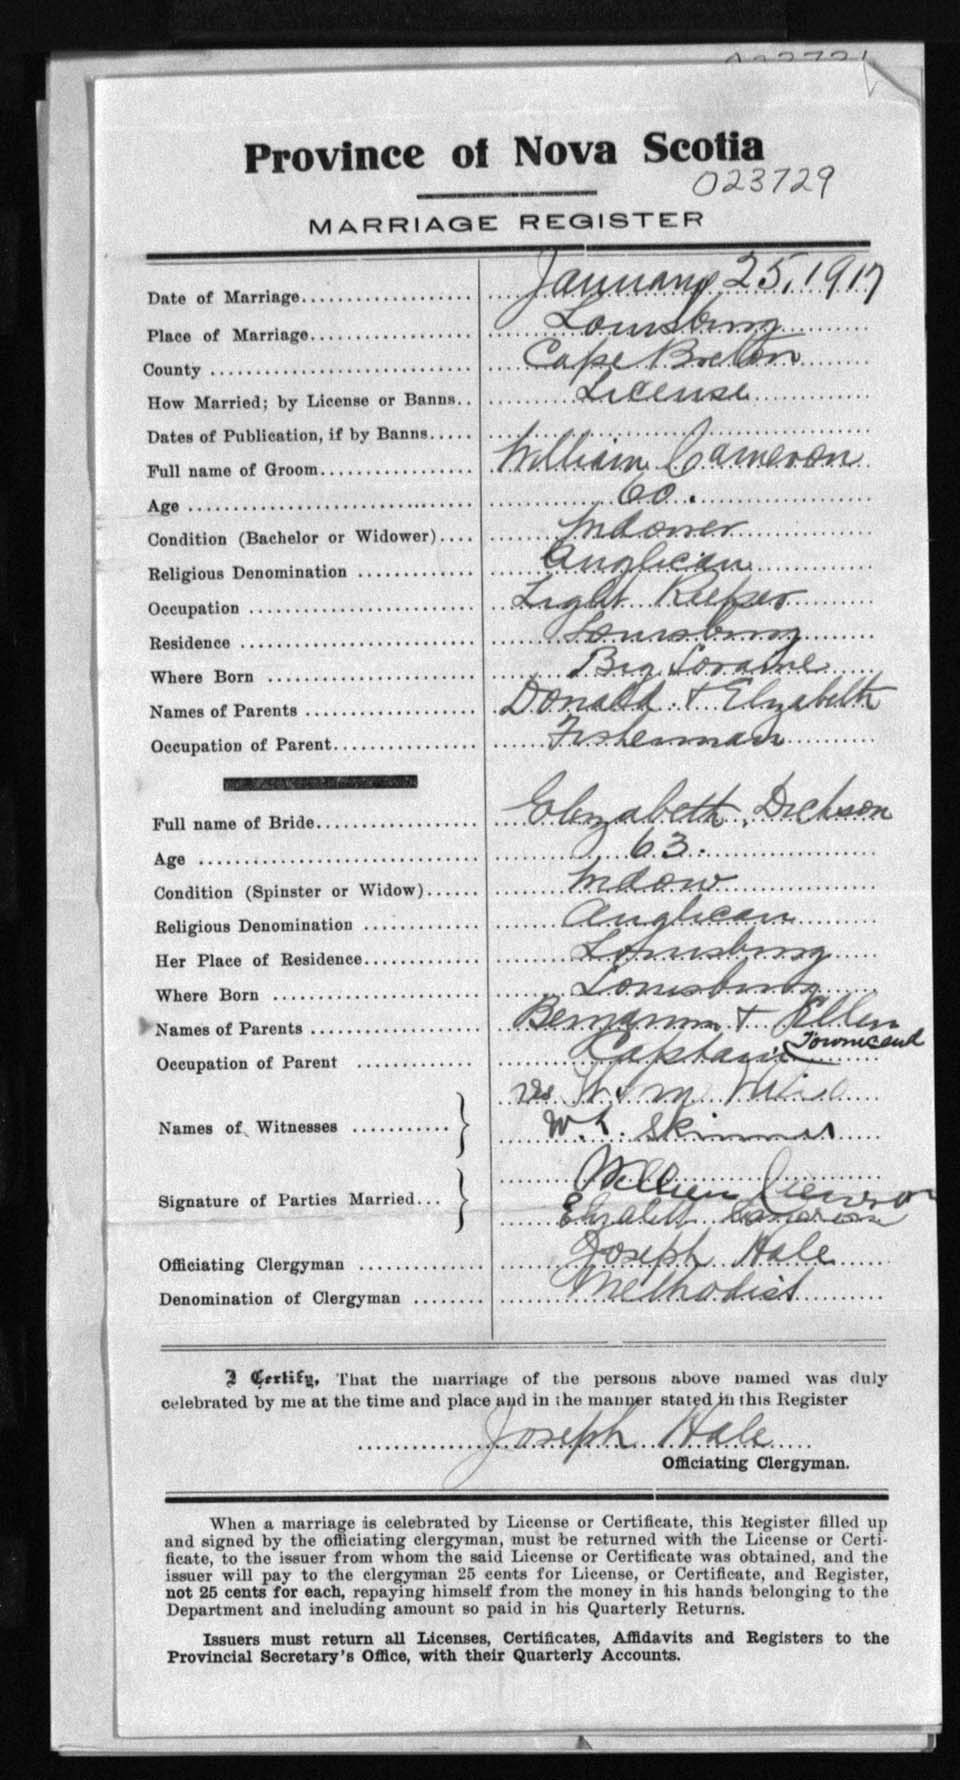 Province of Nova Scotia
023729
MARRIAGE REGISTER
Date of Marriage.................... January 25, 1917
Place of Marriage.................. Louisburg
County .............................. Cape Breton
How Married; by License or Banns.. License
Dates of Publication, if by Banns.....
Full name of Groom.................. William Cameron
Age ................................ 60.
Condition (Bachelor or Widower).... Widower
Religious Denomination ............. Anglican
Occupation ......................... Light Keeper
Residence .......................... Louisburg
Where Born ........................ Big Loraine
Names of Parents ................... Donald & Elizabeth
Occupation of Parent................ Fisherman
Full name of Bride.................. Elizabeth Dickson
Age ................................ 63.
Condition (Spinster or Widow)...... Widow
Religious Denomination ............. Anglican
Her Place of Residence.............. Louisburg
Where Born ........................ Louisburg
Names of Parents ................... Benjamin & Ellen
Townsend
Occupation of Parent ............... Captain
Mrs W. M.
Names of Witnesses ........... W. L. Skinner
William Cameron
Signature of Parties Married...
Elizabeth Cameron
Officiating Clergyman .............. Joseph Hale
Denomination of Clergyman ........ Methodist
I Certify, That the marriage of the persons above named was duly
celebrated by me at the time and place and in the manner stated in this Register
Joseph Hale
Officiating Clergyman.
When a marriage is celebrated by License or Certificate, this Register filled up
and signed by the officiating clergyman, must be returned with the License or Certi-
ficate, to the issuer from whom the said License or Certificate was obtained, and the
issuer will pay to the clergyman 25 cents for License, or Certificate, and Register,
not 25 cents for each, repaying himself from the money in his hands belonging to the
Department and including amount so paid in his Quarterly Returns.
Issuers must return all Licenses, Certificates, Affidavits and Registers to the
Provincial Secretary's Office, with their Quarterly Accounts.